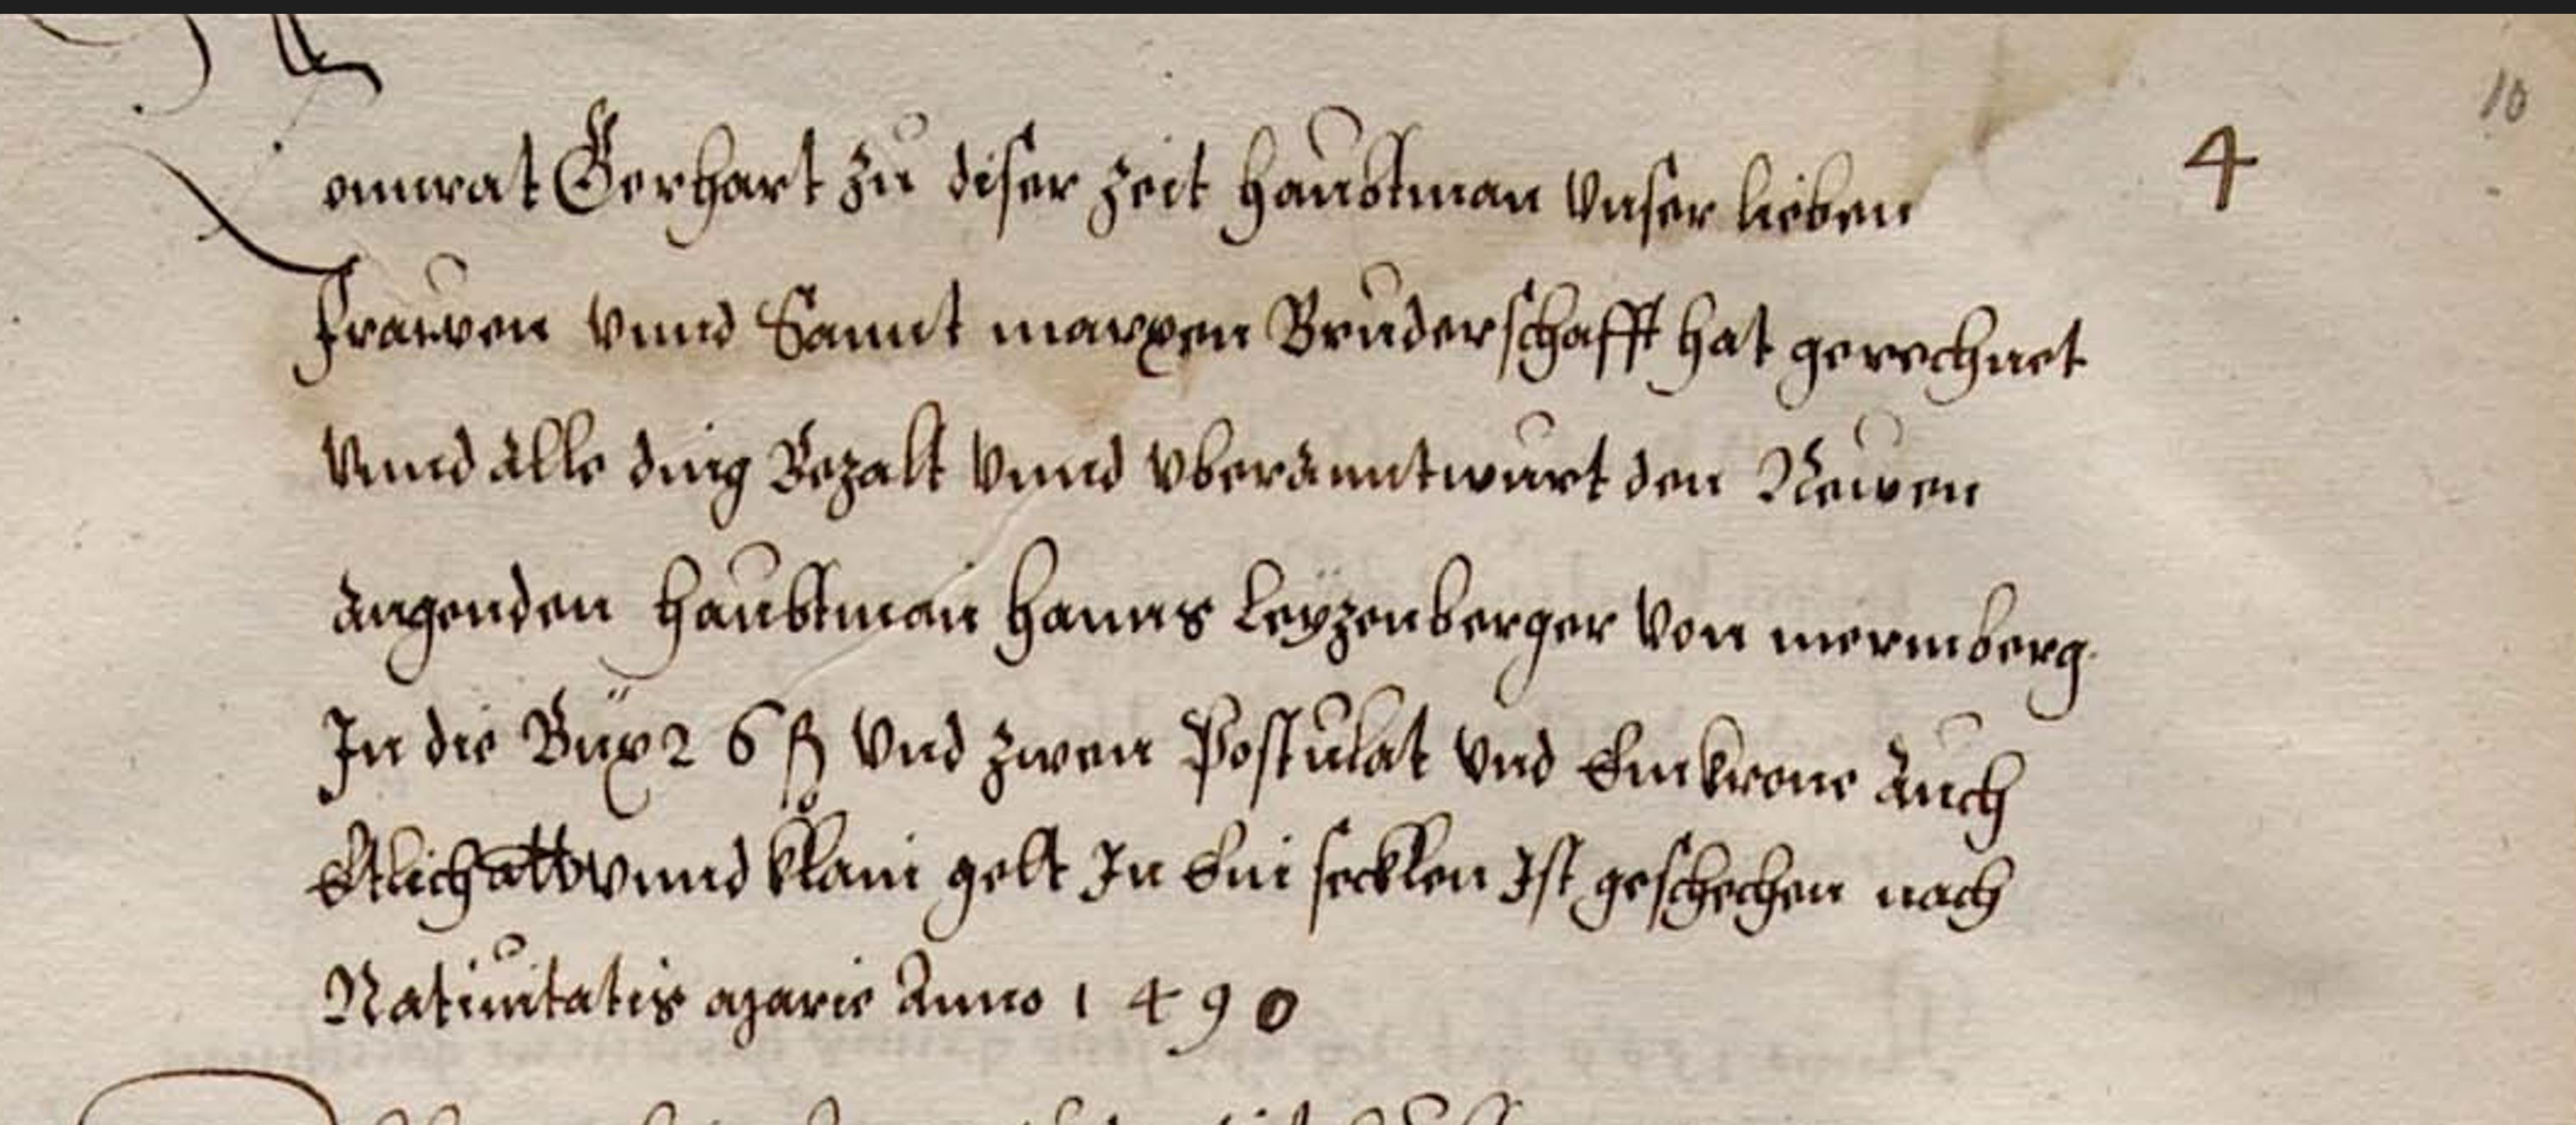 10
4
onnrat Gerhart zu diser zeit haubtman vnser lieben
frawen vnnd Sannt marxen Bruderschafft hat gerechnet
vnnd alle ding Bezalt vnnd vberanntwurt den Newen
angenden haubtman hanns leyzenberger von nermberg.
In die Büx 2 6 ß vnd zwen Postulat vnd Ein krone auch
Etlich vnnd klain gelt In Ein secklen Ist geschechen nach
Natiuitatis marie Anno 1490